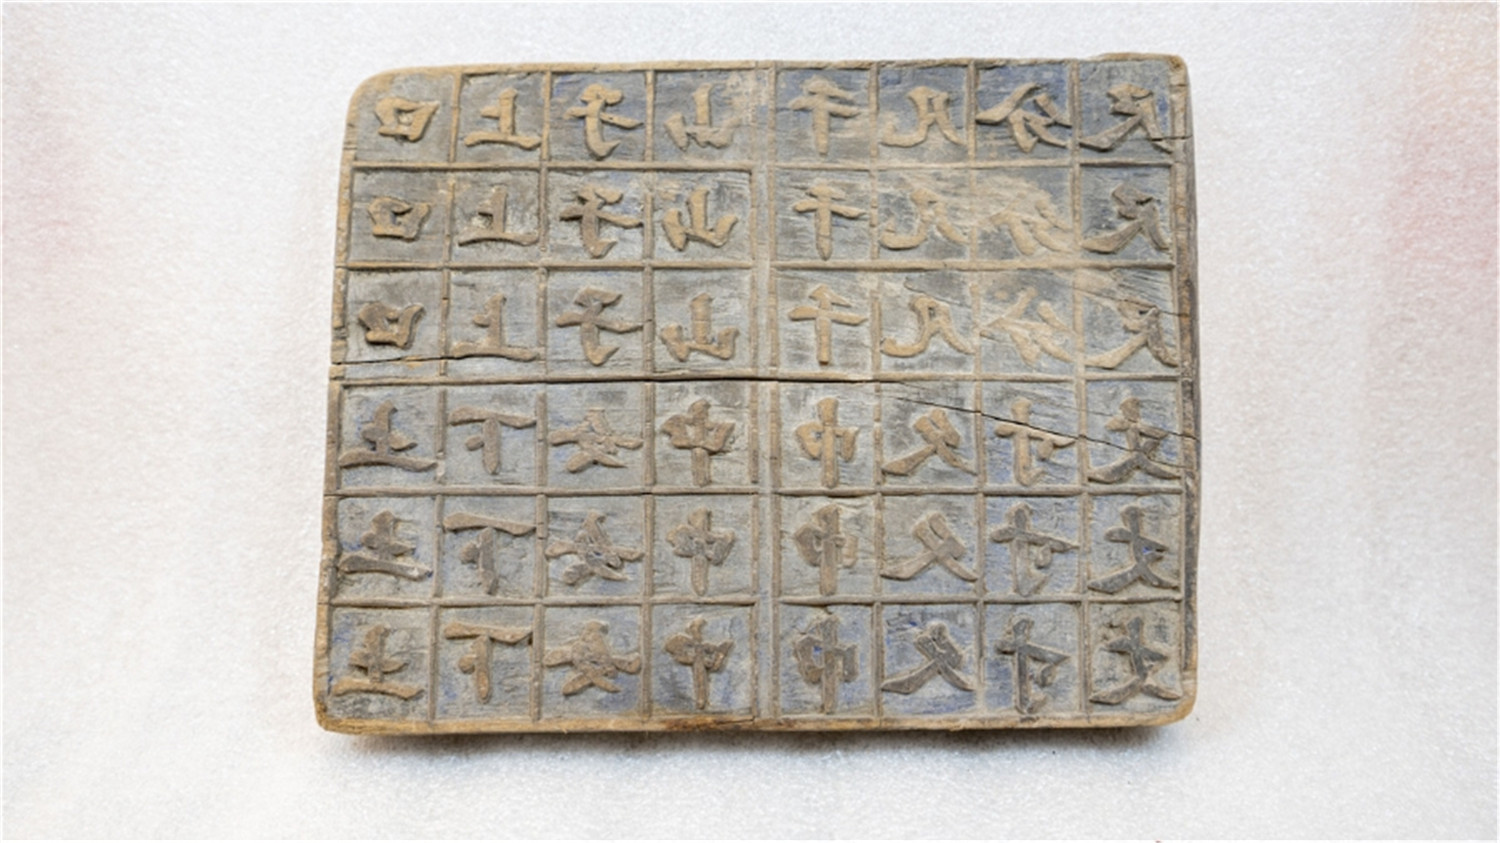 口口口土土土
上上上下下下
子子子女女女
山山山中中中
千千千巾巾巾
凡凡凡久久久
分分分寸寸寸
尺尺尺丈丈丈